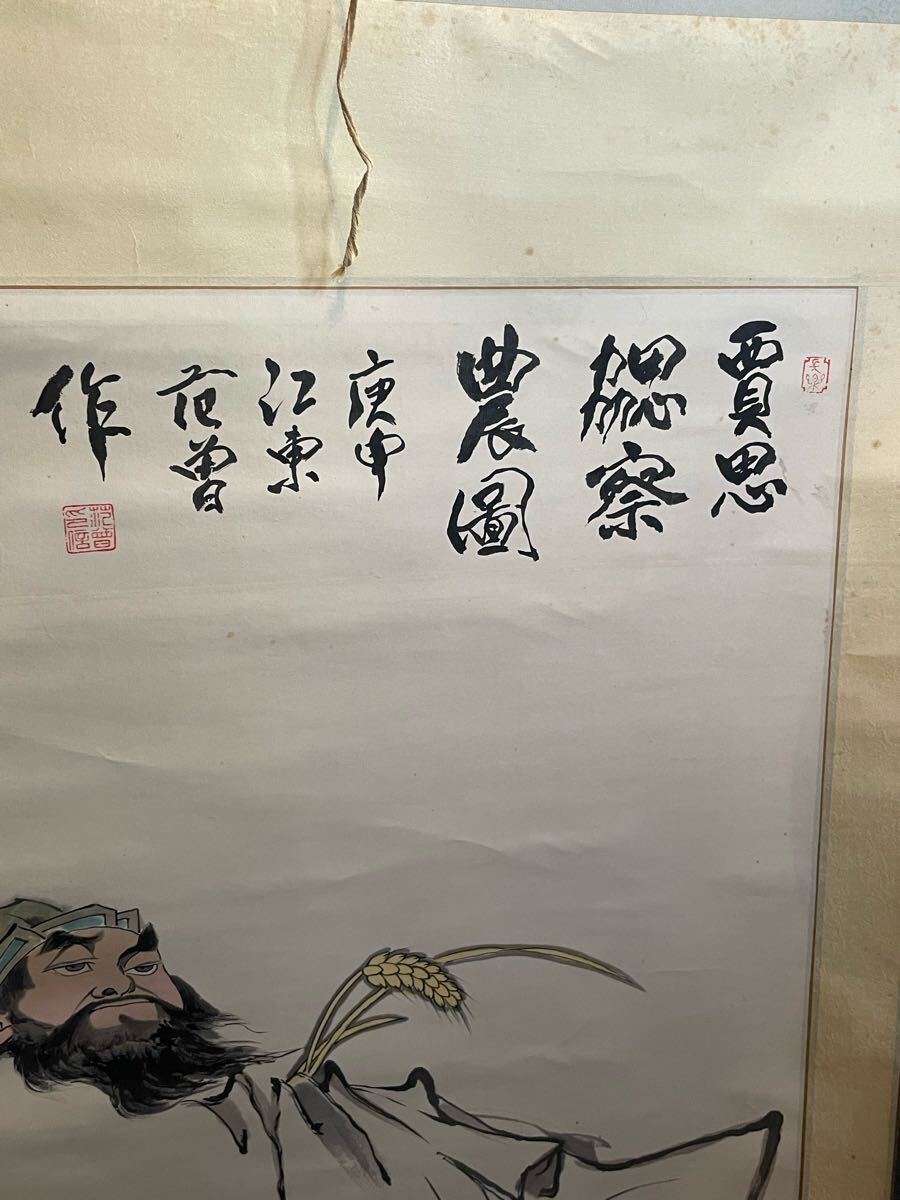 賈思
勰察
農圖
庚申
江東
范曾
作
范曾